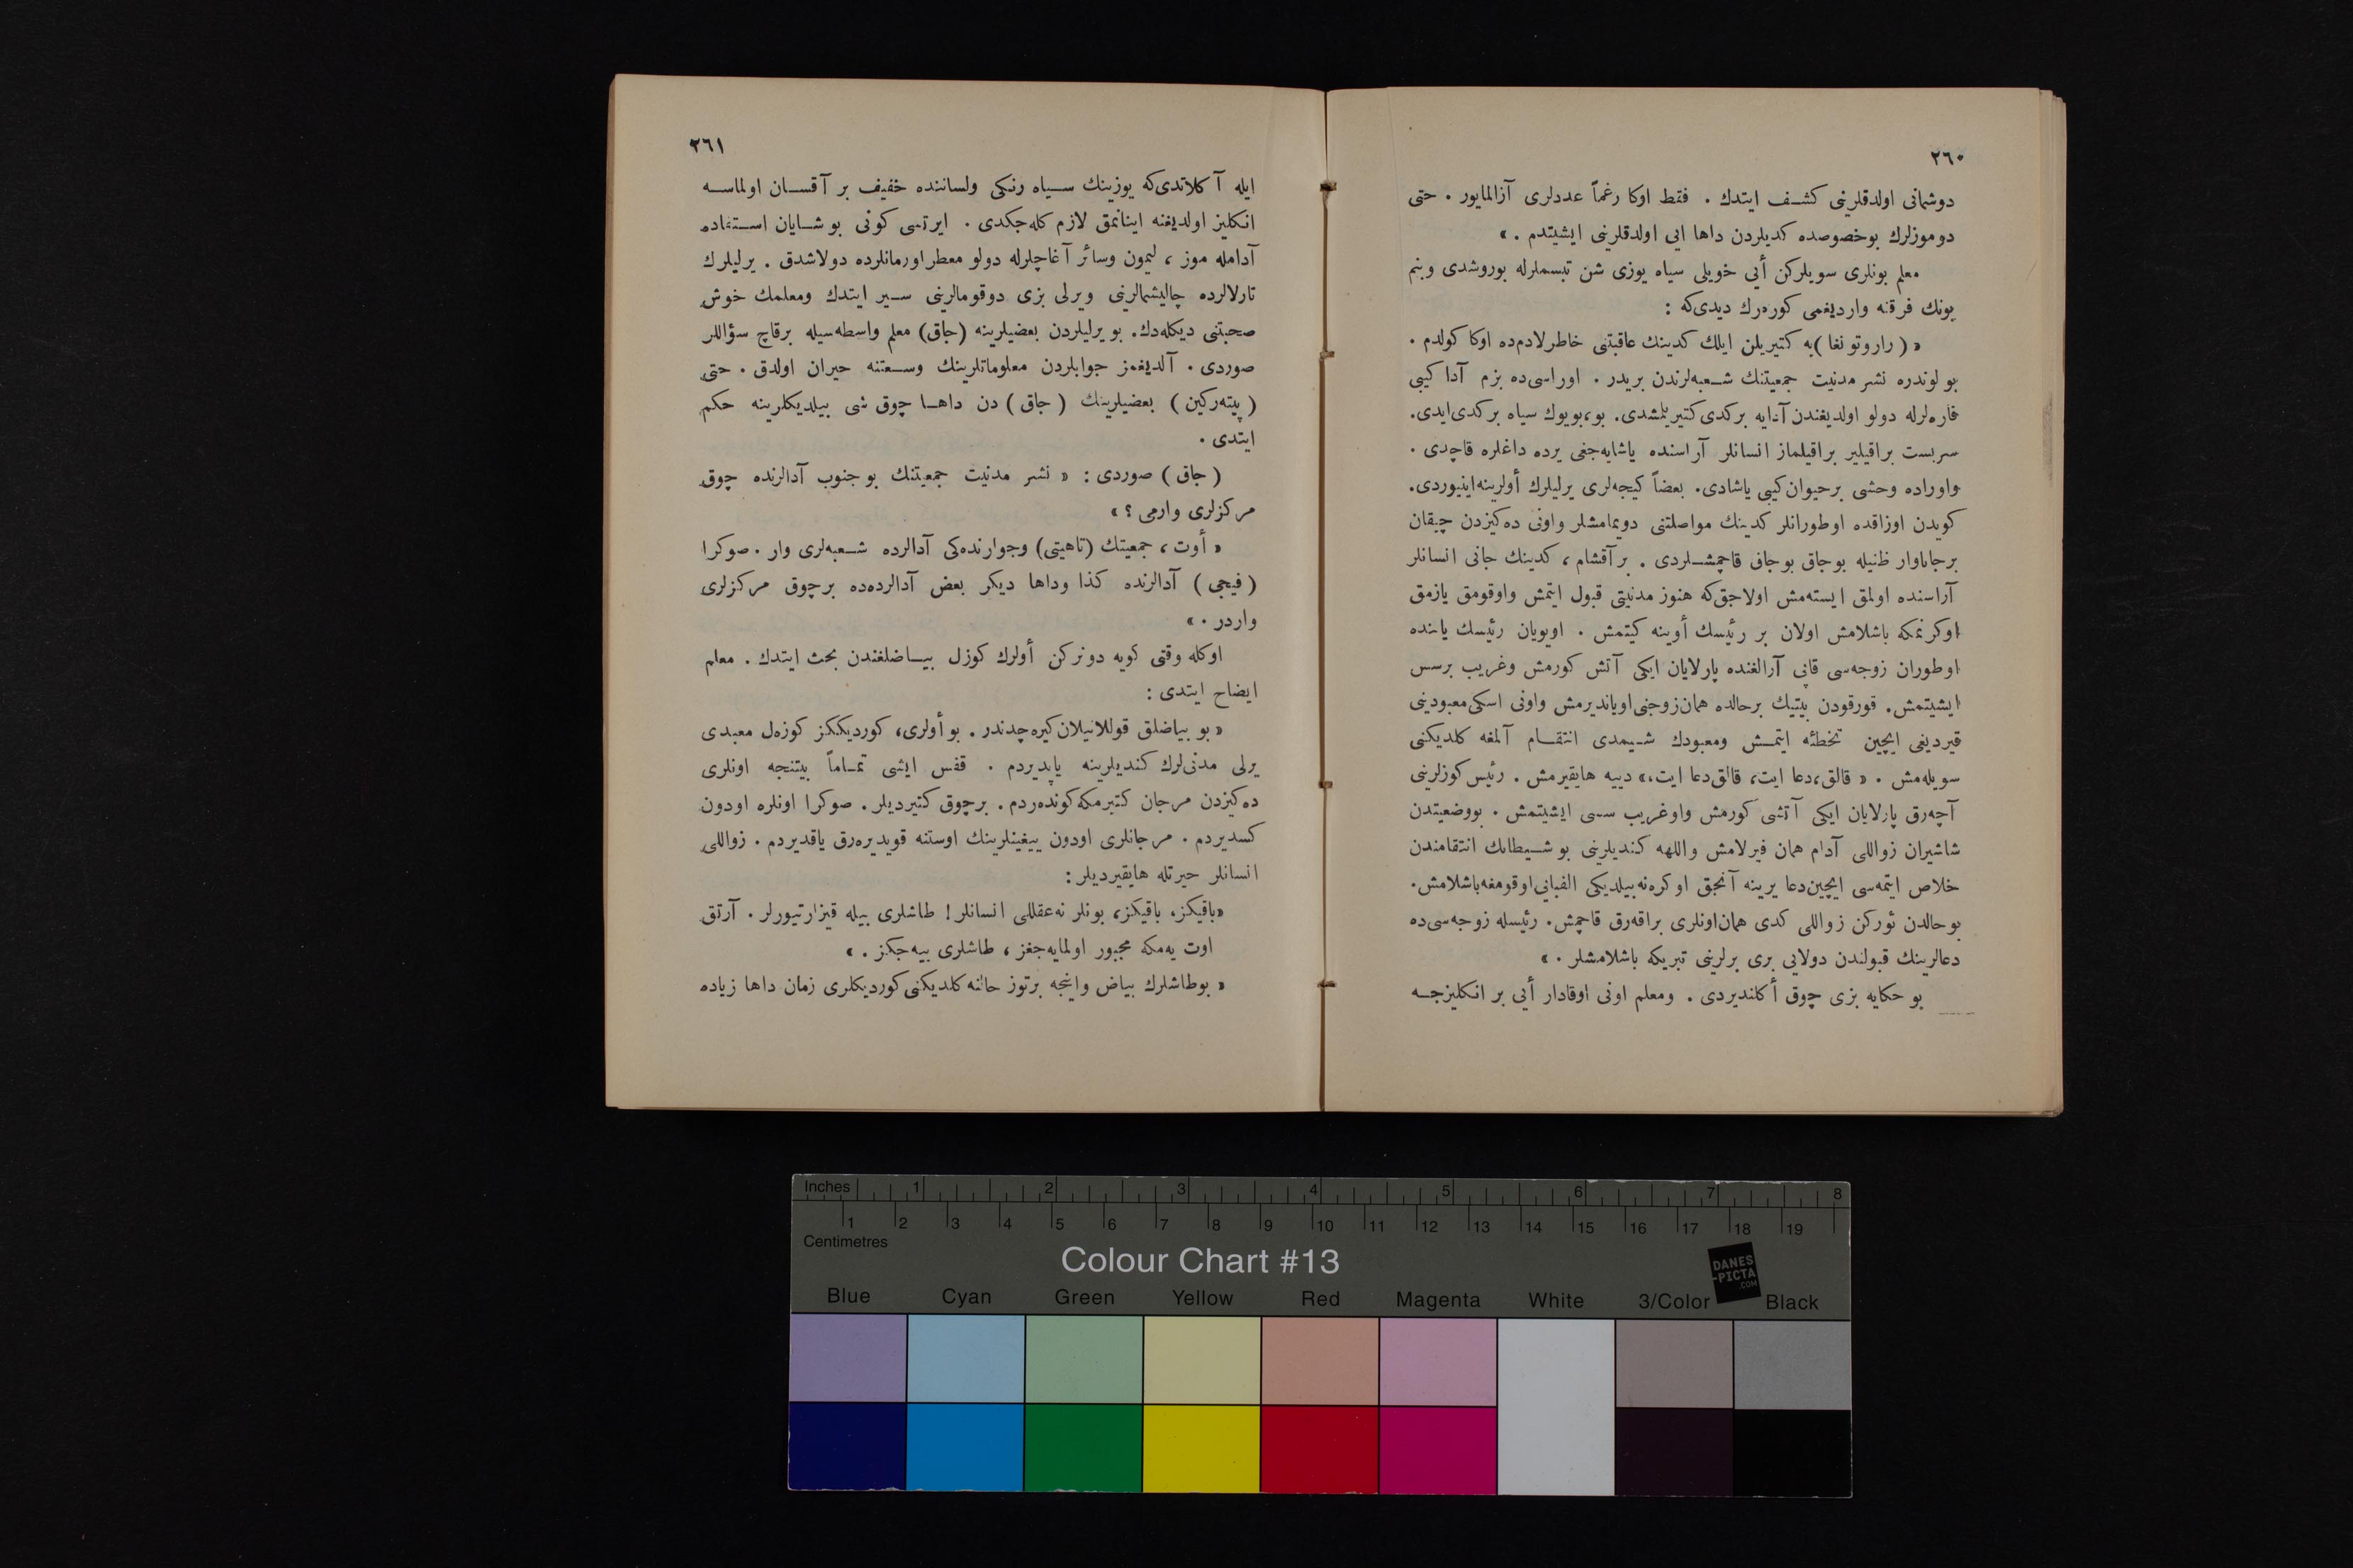 ٢٦٠
دوشمانی اولدقلرینی کشف ایتدك . فقط اوکا رغماً عددلری آزالمایور . حتی
دوموزلرك بوخصوصده کدیلردن داها ایی اولدقلرینی ایشیتدم . »
معلم بونلری سویلرکن أیی خویلی سیاه یوزی شن تبسملرله بوروشدی وبنم
بونك فرقنه واردیغمی کوره‌رك دیدی‌که :
« ( راروتونغا )یه کتیریلن ایلك کدینك عاقبتنی خاطرلادم‌ده اوکا کولدم .
بو لوندره نشر مدنیت جمعیتنك شعبه‌لرندن بریدر . اوراسی‌ده بزم آدا کیبی
فاره‌لرله دولو اولدیغندن آدایه برکدی کتیریلمشدی. بو، بویوك سیاه برکدی‌ایدی.
سربست براقیلیر براقیلماز انسانلر آراسنده یاشایه‌جغی یرده داغلره قاچدی .
واوراده وحشی برحیوان کیبی یاشادی. بعضاً کیجه‌لری یرلیلرك أولرینه اینیوردی.
کویدن اوزاقده اوطورانلر کدینك مواصلتنی دویمامشلر واونی ده‌کیزدن چیقان
برجاناوار ظنیله بوجاق بوجاق قاچمشلردی . برآقشام ، کدینك جانی انسانلر
آراسنده اولمق ایسته‌مش اولاجق‌که هنوز مدنیتی قبول ایتمش واوقومق یازمق
اوکرنمکه باشلامش اولان بر رئیسك أوینه کیتمش . اویویان رئیسك یاننده
اوطوران زوجه‌سی قاپی آرالغنده پارلایان ایکی آتش کورمش وغریب برسس
ایشیتمش. قورقودن بیتیك برحالده همان زوجنی اویاندیرمش واونی اسکی معبودینی
قیردیغی ایچین تخطئه ایتمش ومعبودك شیمدی انتقام آلمغه کلدیکنی
سویله‌مش . « قالق، دعا ایت، قالق دعا ایت، » دییه هایقیرمش . رئیس کوزلرینی
آچه‌رق پارلایان ایکی آتشی کورمش واوغریب سسی ایشیتمش . بووضعیتدن
شاشیران زواللی آدام همان فیرلامش واللهه کندیلرینی بو شیطانك انتقامندن
خلاص ایتمه‌سی ایچین دعا یرینه آنجق اوکره‌نه‌بیلدیکی الفبایی اوقومغه باشلامش.
بوحالدن ئورکن زواللی کدی همان اونلری براقه‌رق قاچمش. رئیسله زوجه‌سی‌ده
دعالرینك قبولندن دولایی بری برلرینی تبریکه باشلامشلر . »
بو حکایه بزی چوق أکلندیردی . ومعلم اونی اوقادار أیی بر انکلیزجه
٢٦١
ایله آکلاتدی‌که یوزینك سیاه رنکی ولساننده خفیف بر آقسان اولماسه
انکلیز اولدیغنه اینانمق لازم کله‌جکدی . ایرتسی کونی بو شایان استفاده
آدامله موز ، لیمون وسائر آغاچلرله دولو معطر اورمانلرده دولاشدق . یرلیلرك
تارلالرده چالیشمالرینی ویرلی بزی دوقومالرینی سیر ایتدك ومعلمك خوش
صحبتنی دیکله‌دك. بو یرلیلردن بعضیلرینه (جاق) معلم واسطه‌سیله برقاچ سؤاللر
صوردی . آلدیغمز جوابلردن معلوماتلرینك وسعتنه حیران اولدق . حتی
( پیته‌رکین ) بعضیلرینك ( جاق ) دن داها چوق شی بیلدیکلرینه حکم
ایتدی .
( جاق ) صوردی : « نشر مدنیت جمعیتنك بو جنوب آدالرنده چوق
مرکزلری وارمی ؟ »
« أوت ، جمعیتك (تاهیتی) وجوارنده‌کی آدالرده شعبه‌لری وار . صوکرا
( فیجی ) آدالرنده کذا وداها دیکر بعض آدالرده‌ده برچوق مرکزلری
واردر . »
اوکله وقتی کویه دونرکن أولرك کوزل بیاضلغندن بحث ایتدك . معلم
ایضاح ایتدی :
« بو بیاضلق قوللانیلان کیره‌چدندر . بو أولری، کوردیککز کوزه‌ل معبدی
یرلی مدنی‌لرك کندیلرینه یاپدیردم . قفس ایشی تماماً بیتنجه اونلری
ده‌کیزدن مرجان کتیرمکه کونده‌ردم . برچوق کتیردیلر . صوکرا اونلره اودون
کسدیردم . مرجانلری اودون ییغینلرینك اوستنه قویدیره‌رق یاقدیردم . زواللی
انسانلر حیرتله هایقیردیلر :
« باقیکز، باقیکز، بونلر نه عقللی انسانلر ! طاشلری بیله قیزارتیورلر . آرتق
اوت یه‌مکه مجبور اولمایه‌جغز ، طاشلری ییه‌جکز . »
« بوطاشلرك بیاض واینجه برتوز حالنه کلدیکنی کوردیکلری زمان داها زیاده
Inches 1 2 3 4 5 6 7 8
1 2 3 4 5 6 7 8 9 10 11 12 13 14 15 16 17 18 19
Centimetres
Colour Chart #13
DANES
-PICTA
.COM
Blue Cyan Green Yellow Red Magenta White 3/Color Black